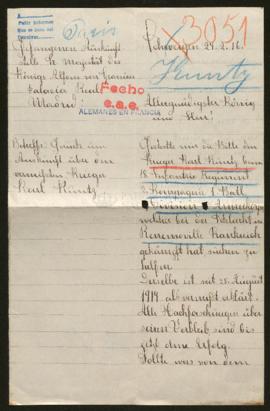 Paris
3051
Gefangenen Auskunft
Stelle Sr. Majestät des
Königs Alfons von Spanien
Palacio Real
Madrid
Fecho
e.a.e.
ALEMANES EN FRANCIA
24.2.16.
Kuntz
Allergnädigster König
und Herr!
Betreffs: Gesuch um
Auskunft über den
vermissten Krieger
Karl Kuntz
Gestatte mir die Bitte den
Krieger Karl Kuntz beim
18. Infantrie Regiment
Kompagnie 1 Batl
Division Armeekorps
welcher bei der Schlacht in
Frankreich
gekämpft hat suchen zu
helfen
Derselbe ist seit 25 August
1914 als vermisst erklärt.
Alle Nachforschungen über
seinen Verbleib sind bis
jetzt ohne Erfolg.
Sollte was von dem